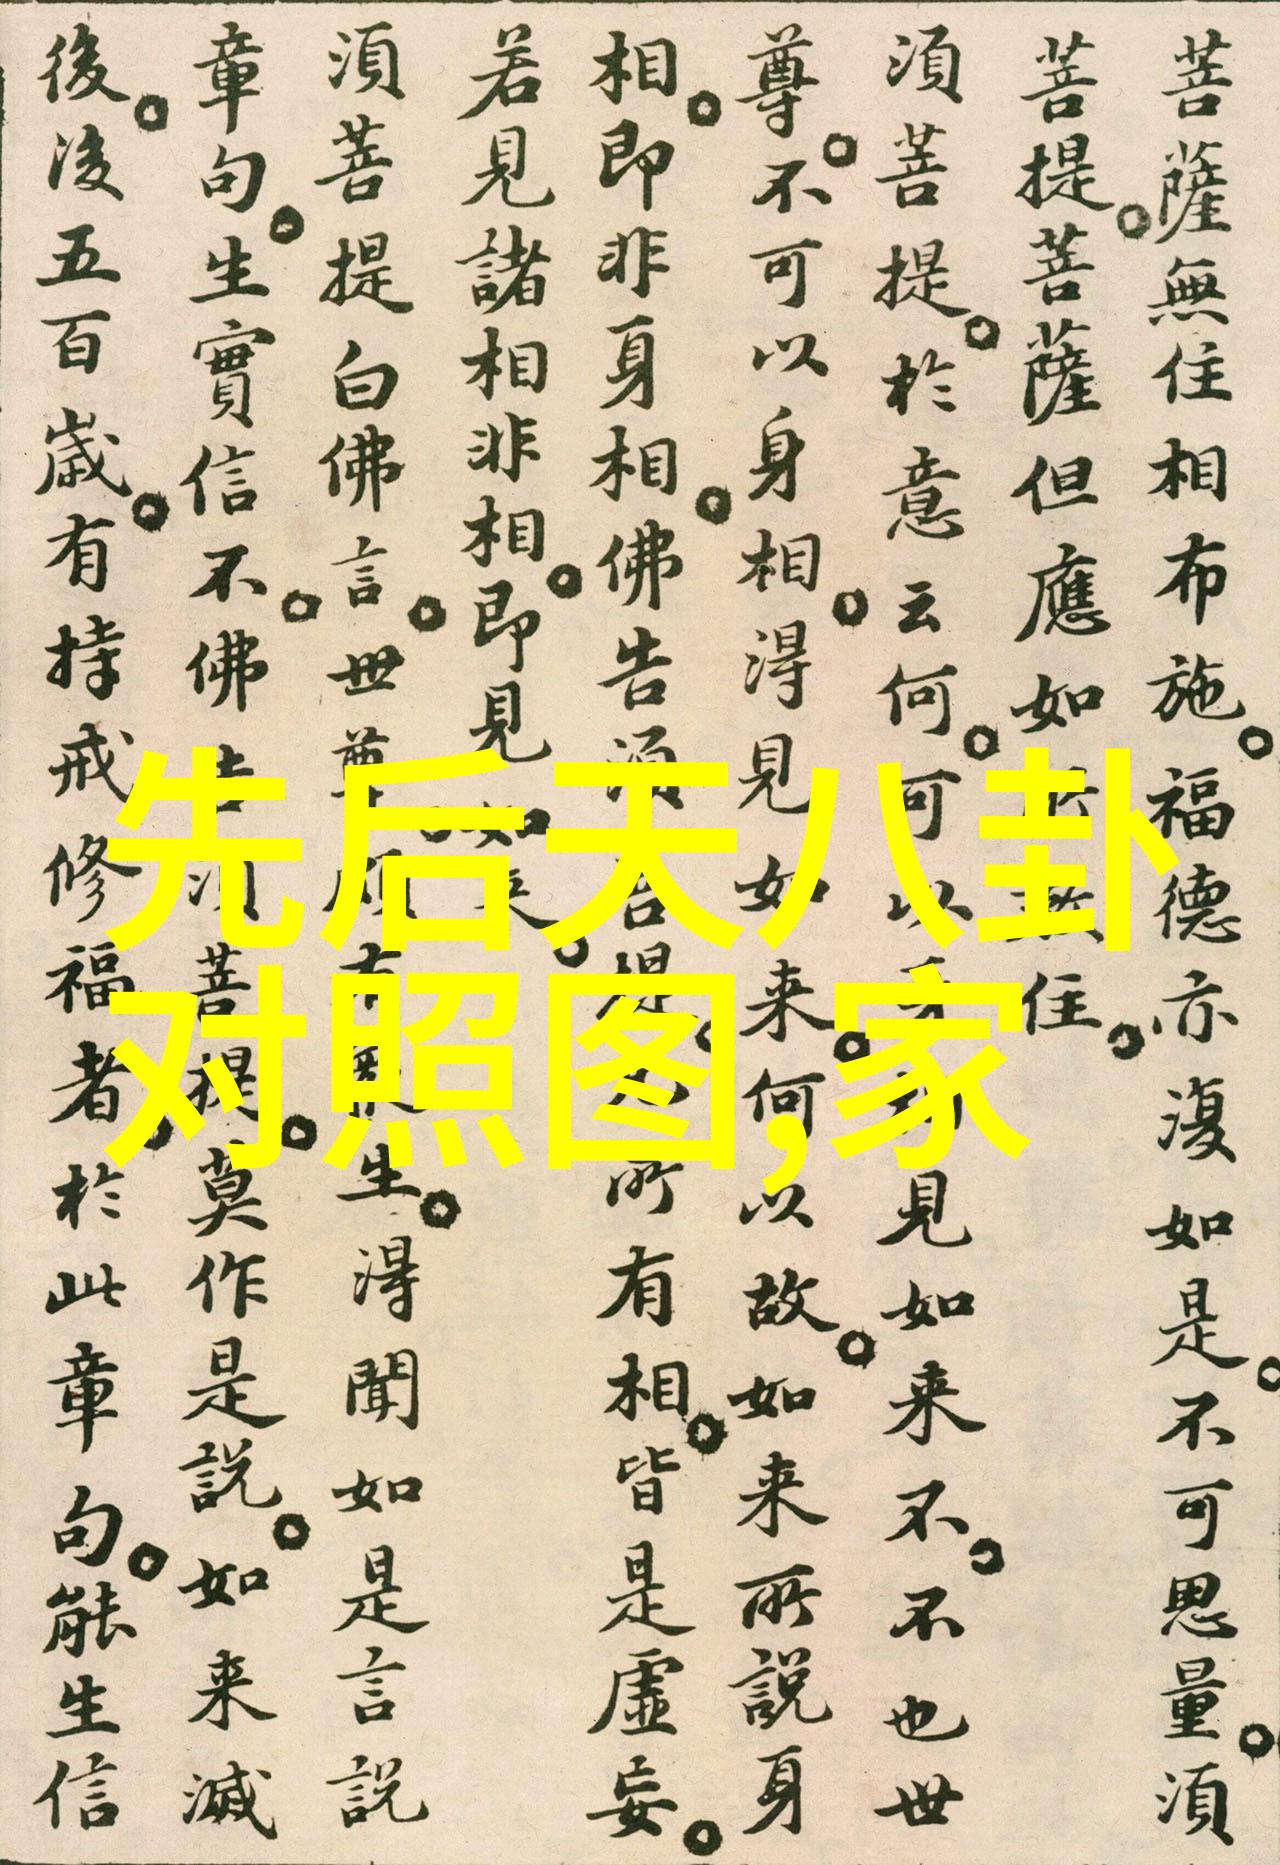 菩薩無住相布施福德亦復如是不可思量須
菩提菩薩但應如住
須菩提於意云何可以見如来不不也世
尊不可以身相得見如来何以故如来所說身
相即非身相佛告須菩提所有相皆是虛妄
若見諸相非相即見如来
須菩提白佛言世尊頗有眾生得聞如是言說
章句生實信不佛告須菩提莫作是說如来滅
後後五百歲有持戒修福者於此章句能生信
先后天八卦
对照图,家